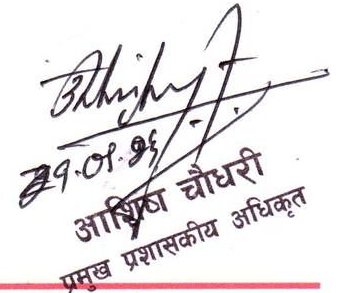 29.01.26
आशिष चौधरी
प्रमुख प्रशासकीय अधिकृत